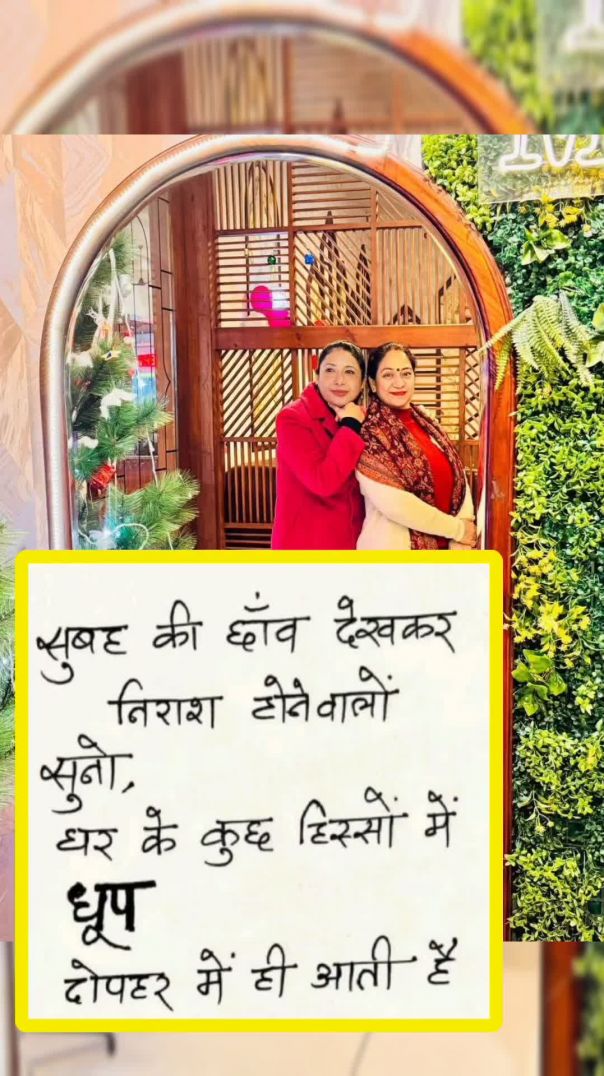 सुबह की छाँव देखकर
निराश होनेवालों
सुनो,
घर के कुछ हिस्सों में
धूप
दोपहर में ही आती है